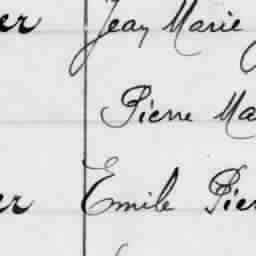 er Jean Marie
Pierre Ma
er Emile Pier